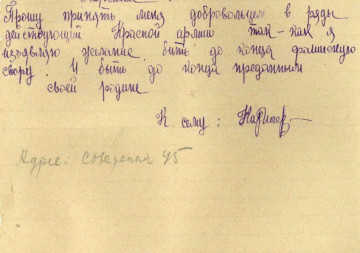 Прошу принять меня добровольцем в ряды
действующий Красной армии так-как я
изъявляю желание бить до конца фашискую
свору. И быть до конца преданным
своей родине
К сему:
Адрес. Советская 45